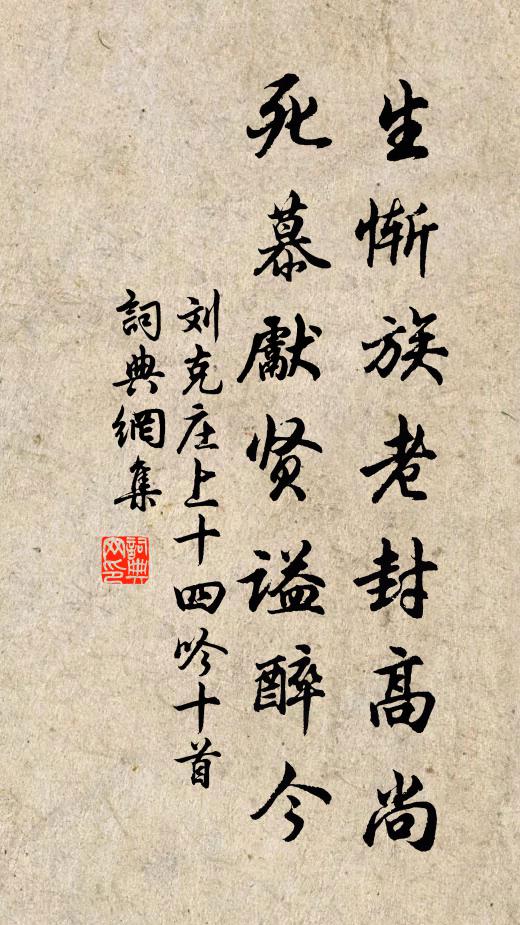 生惭族老封高尚
死慕獻贤谥醉今
刘克庄上十四吟十首
詞典網集
詞典网印